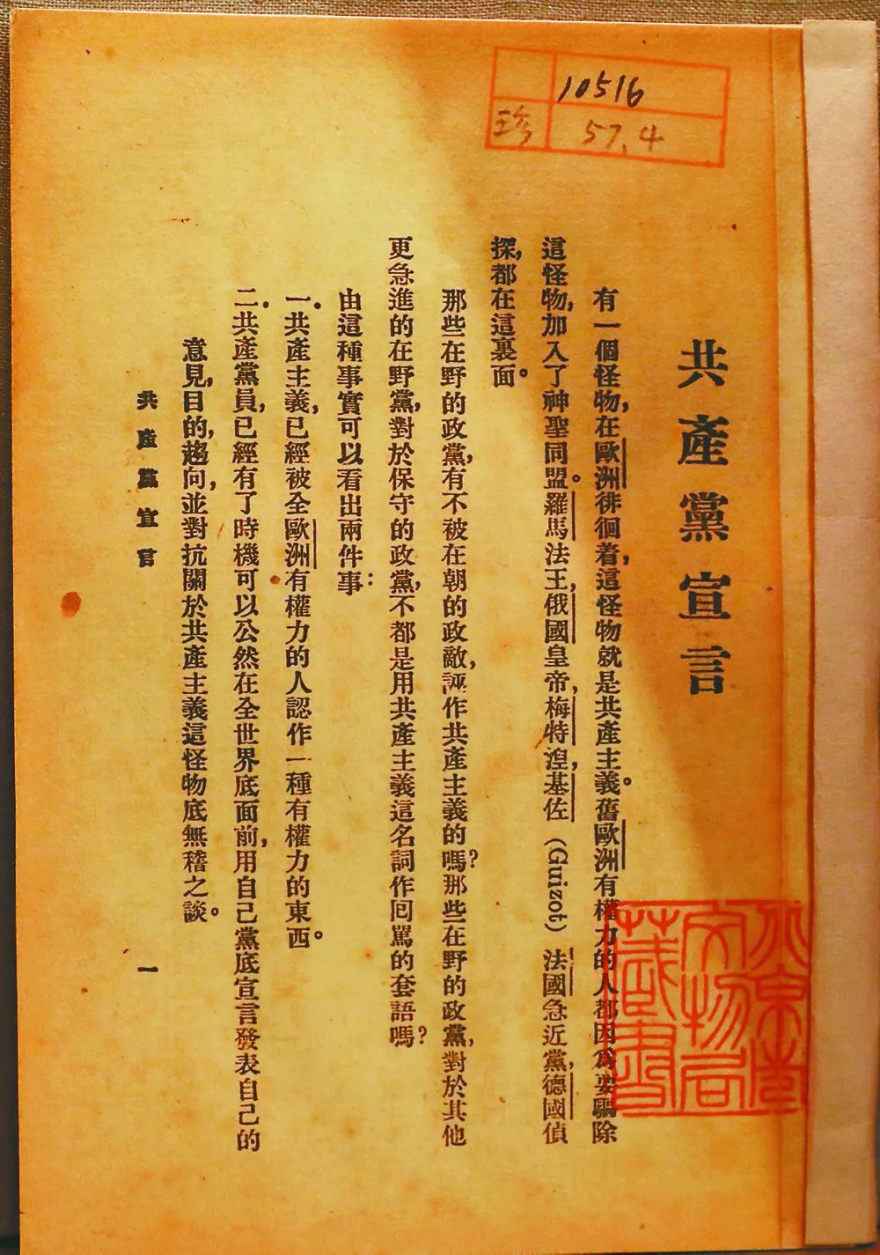 10516
珍 57.4
共產黨宣言
有一個怪物，在歐洲徘徊着，這怪物就是共產主義。舊歐洲有權力的人都因爲要驅除
這怪物，加入了神聖同盟。羅馬法王，俄國皇帝，梅特湼，基佐（Guizot）法國急近黨，德國偵
探，都在這裏面。
那些在野的政黨，有不被在朝的政敵，誣作共產主義的嗎？那些在野的政黨，對於其他
更急進的在野黨，對於保守的政黨，不都是用共產主義這名詞作回罵的套語嗎？
由這種事實可以看出兩件事：
一．共產主義，已經被全歐洲有權力的人認作一種有權力的東西。
二．共產黨員，已經有了時機可以公然在全世界底面前，用自己黨底宣言發表自己的
意見，目的，趨向，並對抗關於共產主義這怪物底無稽之談。
共產黨宣言
一
北京市
文物局
藏書